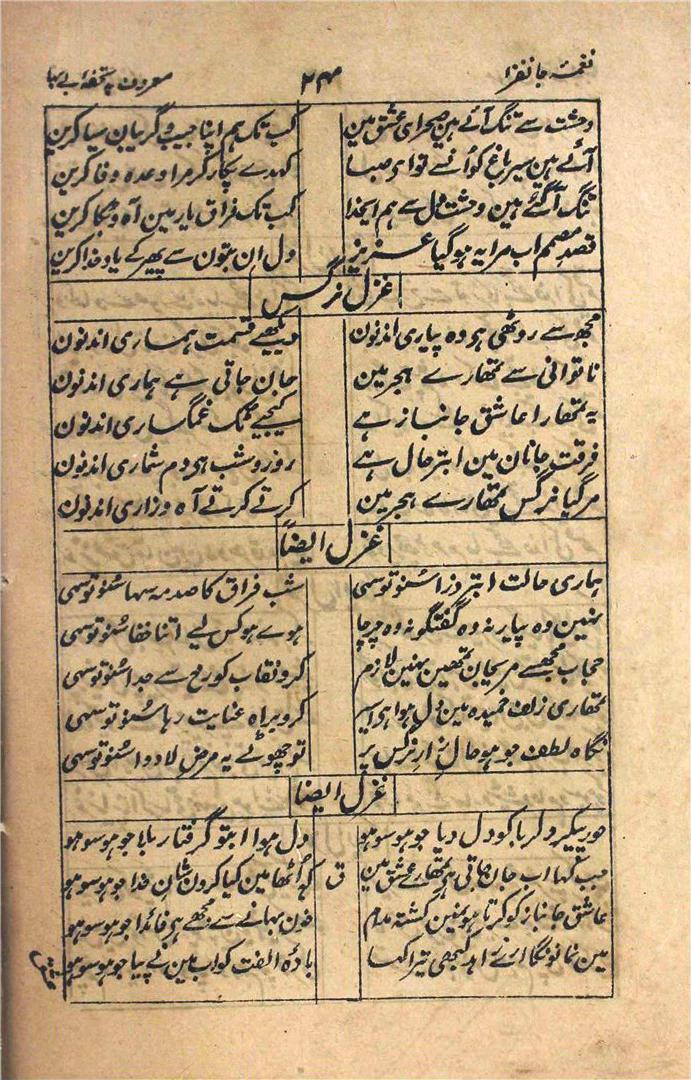 نغمۂ جانفزا ۲۴۳ معروف بہ تحفۂ بے بہا
وحشت سے تنگ آئے ہین صحرای عشق مین کب تک ہم اپنا جیب و گریبان سیا کرین
آئے ہین سیر باغ کو اُنسے تو ای صبا کہدے پکار کر مرا وعدہ وفا کرین
تنگ آگئے ہین وحشت دل سے ہم ایخدا کب تک فراق یار مین آہ و بکا کرین
قصد مصمم اب مرا یہ ہوگیا عزیز دل ان بتون سے پھیر کے یاد خدا کرین
غزل نرگس
مجھ سے روٹھی ہی وہ پیاری اندنون دیکھیے قسمت ہماری اندنون
ناتوانی سے تمھارے ہجر مین جان جاتی ہے ہماری اندنون
یہ تمھارا عاشق جانباز ہے کیجیے ٹمک غمگساری اندنون
فرقت جانان مین ابتر حال ہے روز و شب ہی دم شماری اندنون
مرگیا نرگس تمھارے ہجر مین کرتے کرتے آہ و زاری اندنون
غزل ایضاً
ہماری حالت ابتر ذرا سُنو تو سہی شب فراق کا صدمہ سہا سُنو تو سہی
نہین وہ پیار نہ وہ گفتگو نہ وہ چرچا ہوے ہو کس لیے اتنا خفا سُنو تو سہی
حجاب مجھسے مریجان تمھین نہین لازم کرو نقاب کو رخ سے جدا سُنو تو سہی
تمھاری زلف خمیدہ مین دل ہوا ہی اسیر کرو براہ عنایت رہا سُنو تو سہی
نگاہ لطف جو ہو حال زار نرگس پر تو چھوٹے یہ مرض لادوا سُنو تو سہی
غزل ایضا
حور پیکر دلربا کو دل دیا جو ہو سو ہو دل ہوا ابتو گرفتار بلا جو ہو سو ہو
جب کہا اب جان جاتی ہی تمھارے عشق مین ق کہ اُٹھا مین کیا کرون شان خدا جو ہو سو ہو
عاشق جانباز کو کرتا ہو نہین کشتہ مدام خون بہانے سے مجھے ہی فائدا جو ہو سو ہو
مین نمانونگا ارے زاہد کبھی تیرا کہا بادۂ الفت کو اب مین نے پیا جو ہو سو ہو